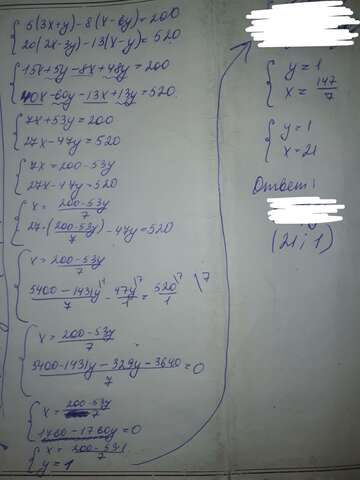 5(3x+y)-8(x-6y)=200
20(2x-3y)-13(x-y)=520
15x+5y-8x+48y=200
40x-60y-13x+13y=520
7x+53y=200
27x-47y=520
7x=200-53y
27x-47y=520
x=\frac{200-53y}{7}
27·(\frac{200-53y}{7})-47y=520
x=\frac{200-53y}{7}
\frac{5400-1431y}{7}^{\1}-\frac{47y}{1}^{\7}=\frac{520}{1}^{\7} \7
x=\frac{200-53y}{7}
\frac{5400-1431y-329y-3640}{7}=0
x=\frac{200-53y}{7}
1760-1760y=0
x=\frac{200-53·1}{7}
y=1
y=1
x=\frac{147}{7}
y=1
x=21
Ответ:
(21;1)